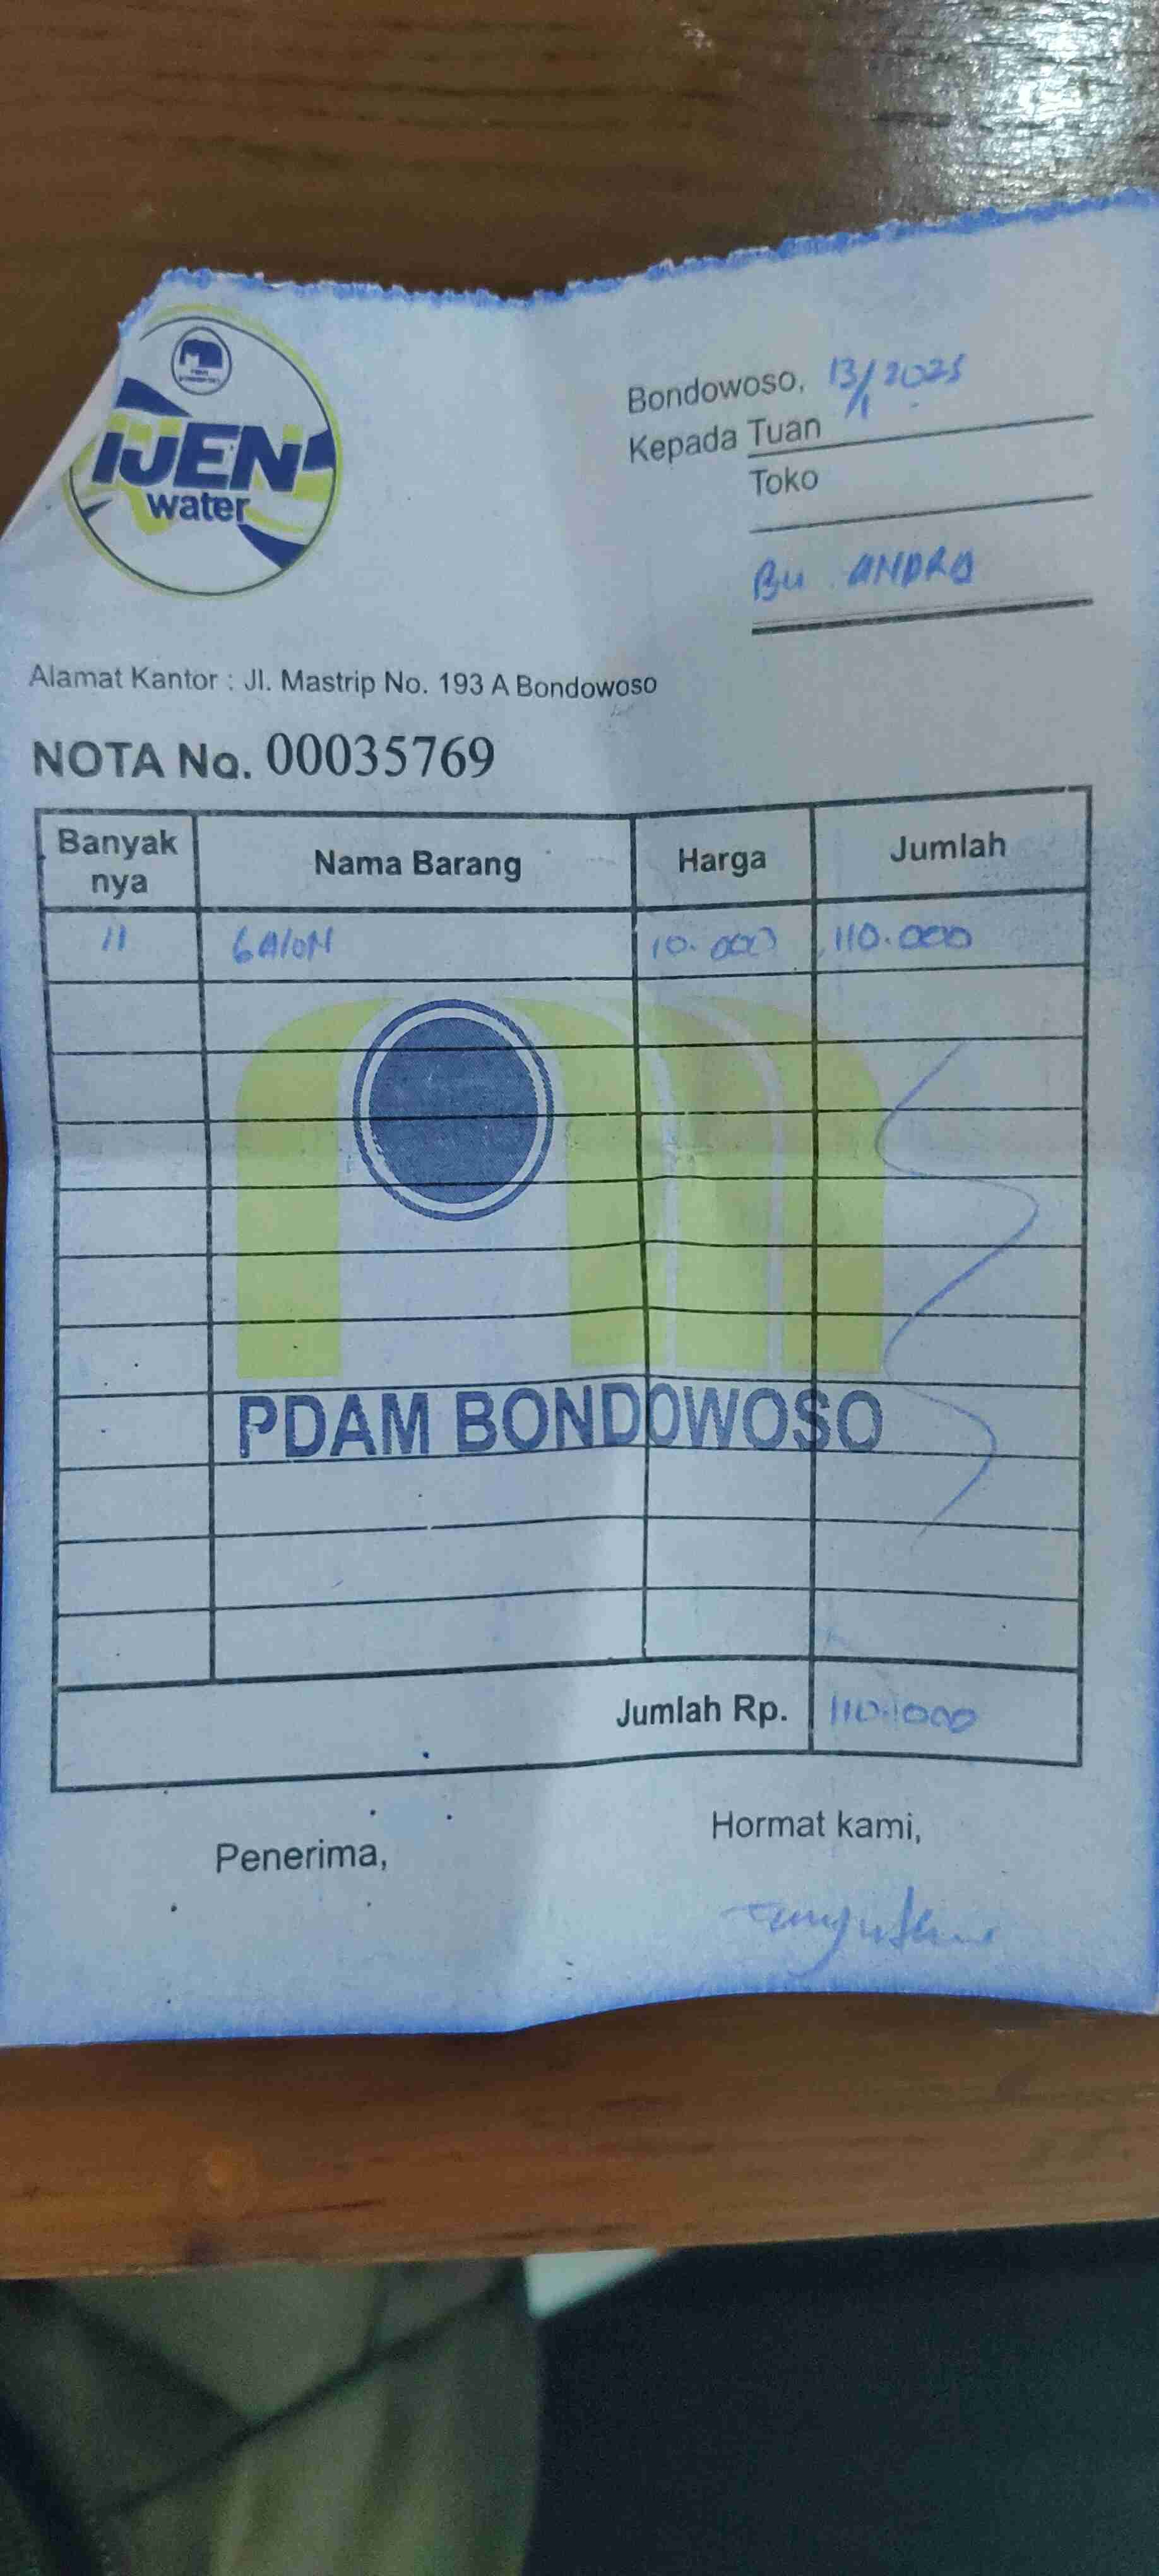 IJEN
water
Bondowoso, 13/1 2025
Kepada Tuan
Toko
Bu ANDRO
Alamat Kantor : Jl. Mastrip No. 193 A Bondowoso
NOTA No. 00035769
Banyak nya Nama Barang Harga Jumlah
11 GAlON 10.000 110.000
PDAM BONDOWOSO
Jumlah Rp. 110.000
Penerima, Hormat kami,